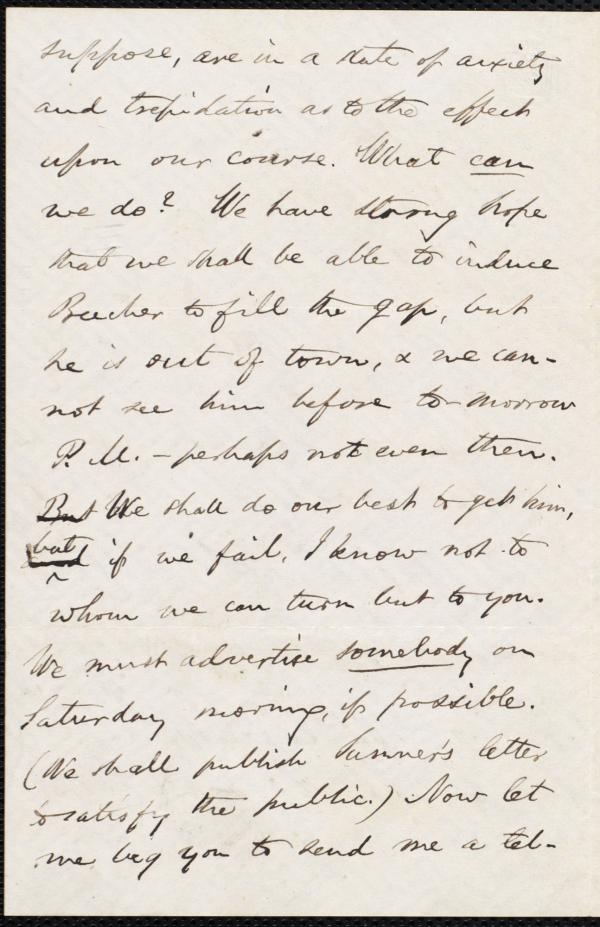 suppose, are in a state of anxiety
and trepidation as to the effect
upon our course. What can
we do? We have strong hope
that we shall be able to induce
Beecher to fill the gap, but
he is out of town, & we can-
not see him before to-morrow
P. M. – perhaps not even then.
But We shall do our best to get him,
but if we fail, I know not to
whom we can turn but to you.
We must advertise somebody on
Saturday morning, if possible.
(We shall publish Sumner's letter
to satisfy the public.) Now let
me beg you to send me a tel-